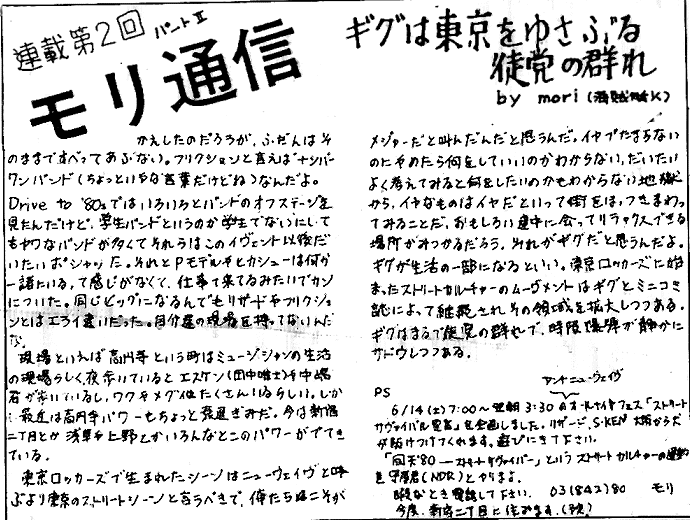 連載第2回 パートⅡ
モリ通信
ギグは東京をゆさぶる
徒党の群れ
by mori (海賊
かえしたのだろうが、ふだんはそ
のままですべってあぶない。フリクションと言えばナンバー
ワンバンド(ちょっといやな言葉だけどね)なんだよ。
Drive to '80sではいろいろとバンドのオフステージを
見たんだけど、学生バンドというのか学生でないにして
もヤワなバンドが多くてそれらはこのイヴェント以後だ
いたいポシャッた。それとPモデルやヒカシューは何か
一緒にいるって感じがなくて、仕事で来てるみたいでカン
についた。同じビッグになるんでもリザードやフリクショ
ンとはエライ違いだった。自分達の現場を持ってないんだ
な。
現場といえば高円寺という町はミュージシャンの生活
の現場らしく、夜歩いているとエスケン(田中唯士)や中嶋
君が歩いているし、ワケやメグなどたくさんいるらしい。しか
し最近は高円寺パワーもちょっと衰退ぎみだ。今は新宿
二丁目とか浅草や上野とかいろんなとこのパワーがでてき
ている。
東京ロッカーズで生まれたシーンはニューウェイヴと呼
ぶより東京のストリートシーンと言うべきで、俺たちはこそが
メジャーだと叫んだんだと思うんだ。イヤでたまらない
のにやめたら何をしていいのかわからない、だいたい
よく考えてみると何をしたいのかもわからない地獄
から、イヤなものはイヤだといって街をほっつきまわっ
てみることだ、おもしろい連中に会ってリラックスできる
場所がみつかるだろう、それがギグだと思うんだよ。
ギグが生活の一部になるといい。東京ロッカーズに始
まったストリートカルチャーのムーヴメントはギグとミニコミ
誌によって継続されその領域を拡大しつつある。
ギグはまるで徒党の群れで、時限爆弾が静かに
サドウしつつある。
アンチニューウェイヴ
PS
6/14(土)7:00〜翌朝3:30 オールナイトフェス「ストリート
サヴァイバル宣言」を企画しました。リザード、S-KEN 大阪から
が駆けつけてくれます。遊びにきて下さい。
「回天'80 ―ストリートサヴァイバー」というストリートカルチャーの
を守屋君(NDR)とやりますよ。
暇なとき電話して下さい。 03(842)80 モリ
今度、新宿二丁目に住みます。(予)